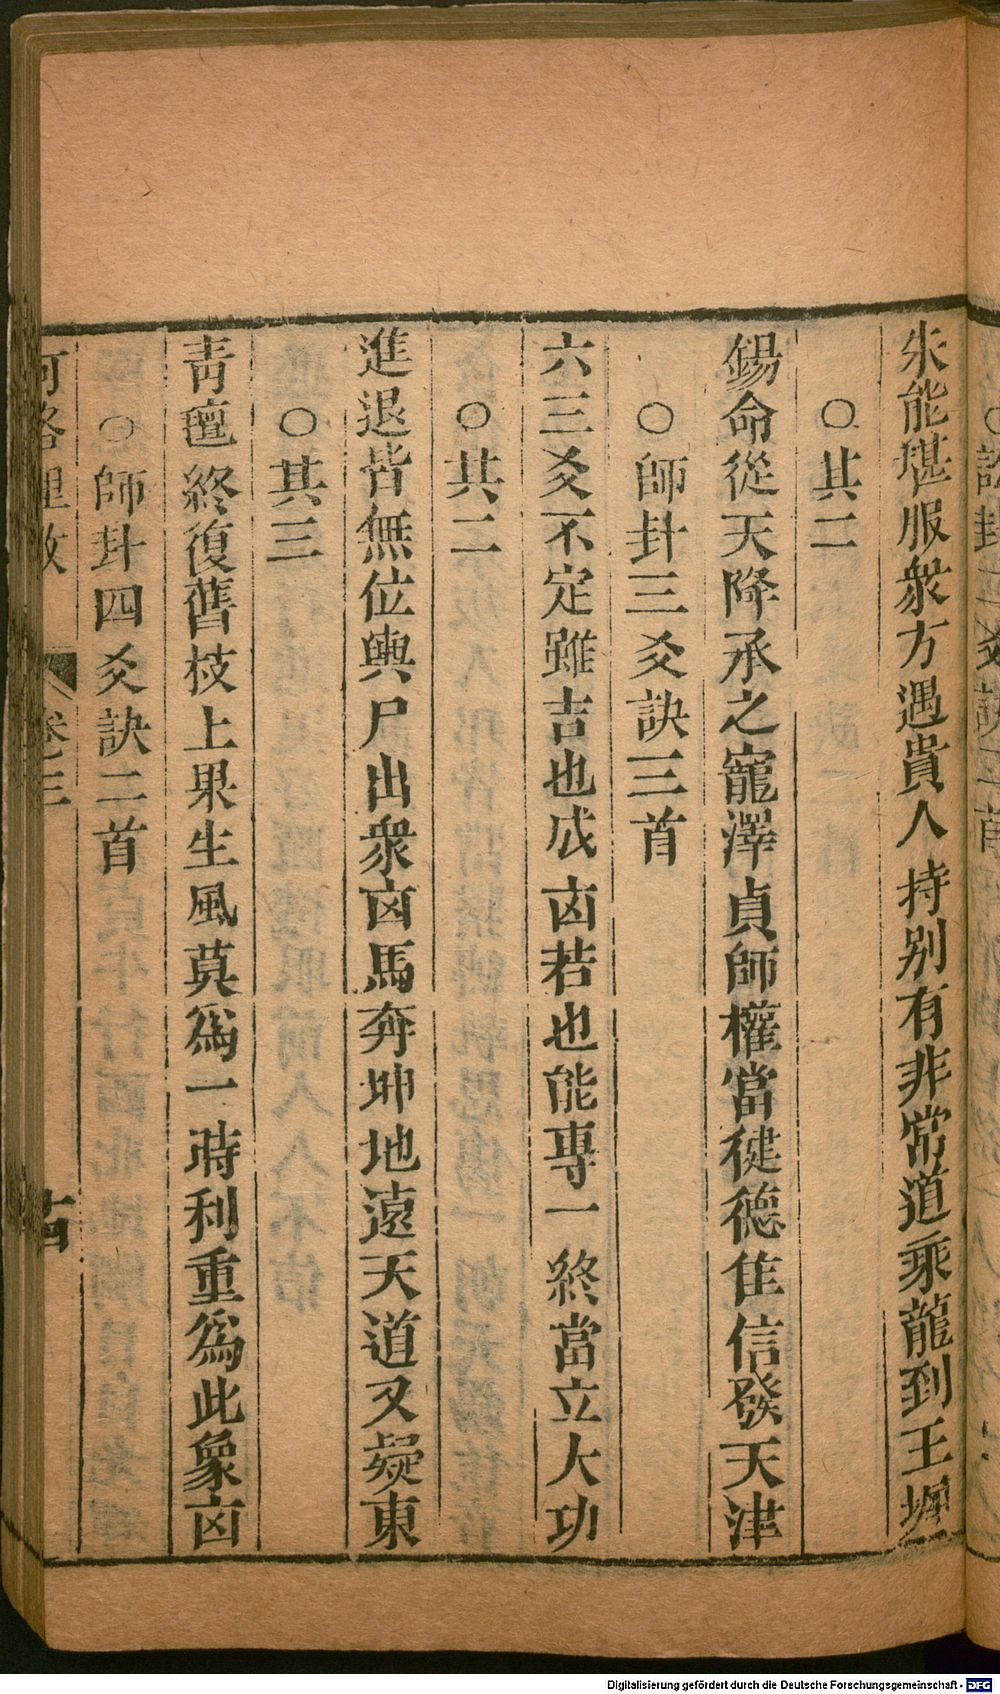 訟卦二爻訣二首
未能堪服衆方遇貴人持别有非常道乘龍到王墀
○其二
錫命從天降承之寵澤貞師權當徤德隹信發天津
○師卦三爻訣三首
六三爻不定雖吉也成凶若也能專一終當立大功
○其二
進退皆無位輿尸出衆凶馬奔坤地遠天道又疑東
○其三
靑氊終復舊枝上果生風莫爲一時利重爲此象凶
○師卦四爻訣二首
河洛理数 卷三 十四
Digitalisierung gefördert durch die Deutsche Forschungsgemeinschaft - DFG